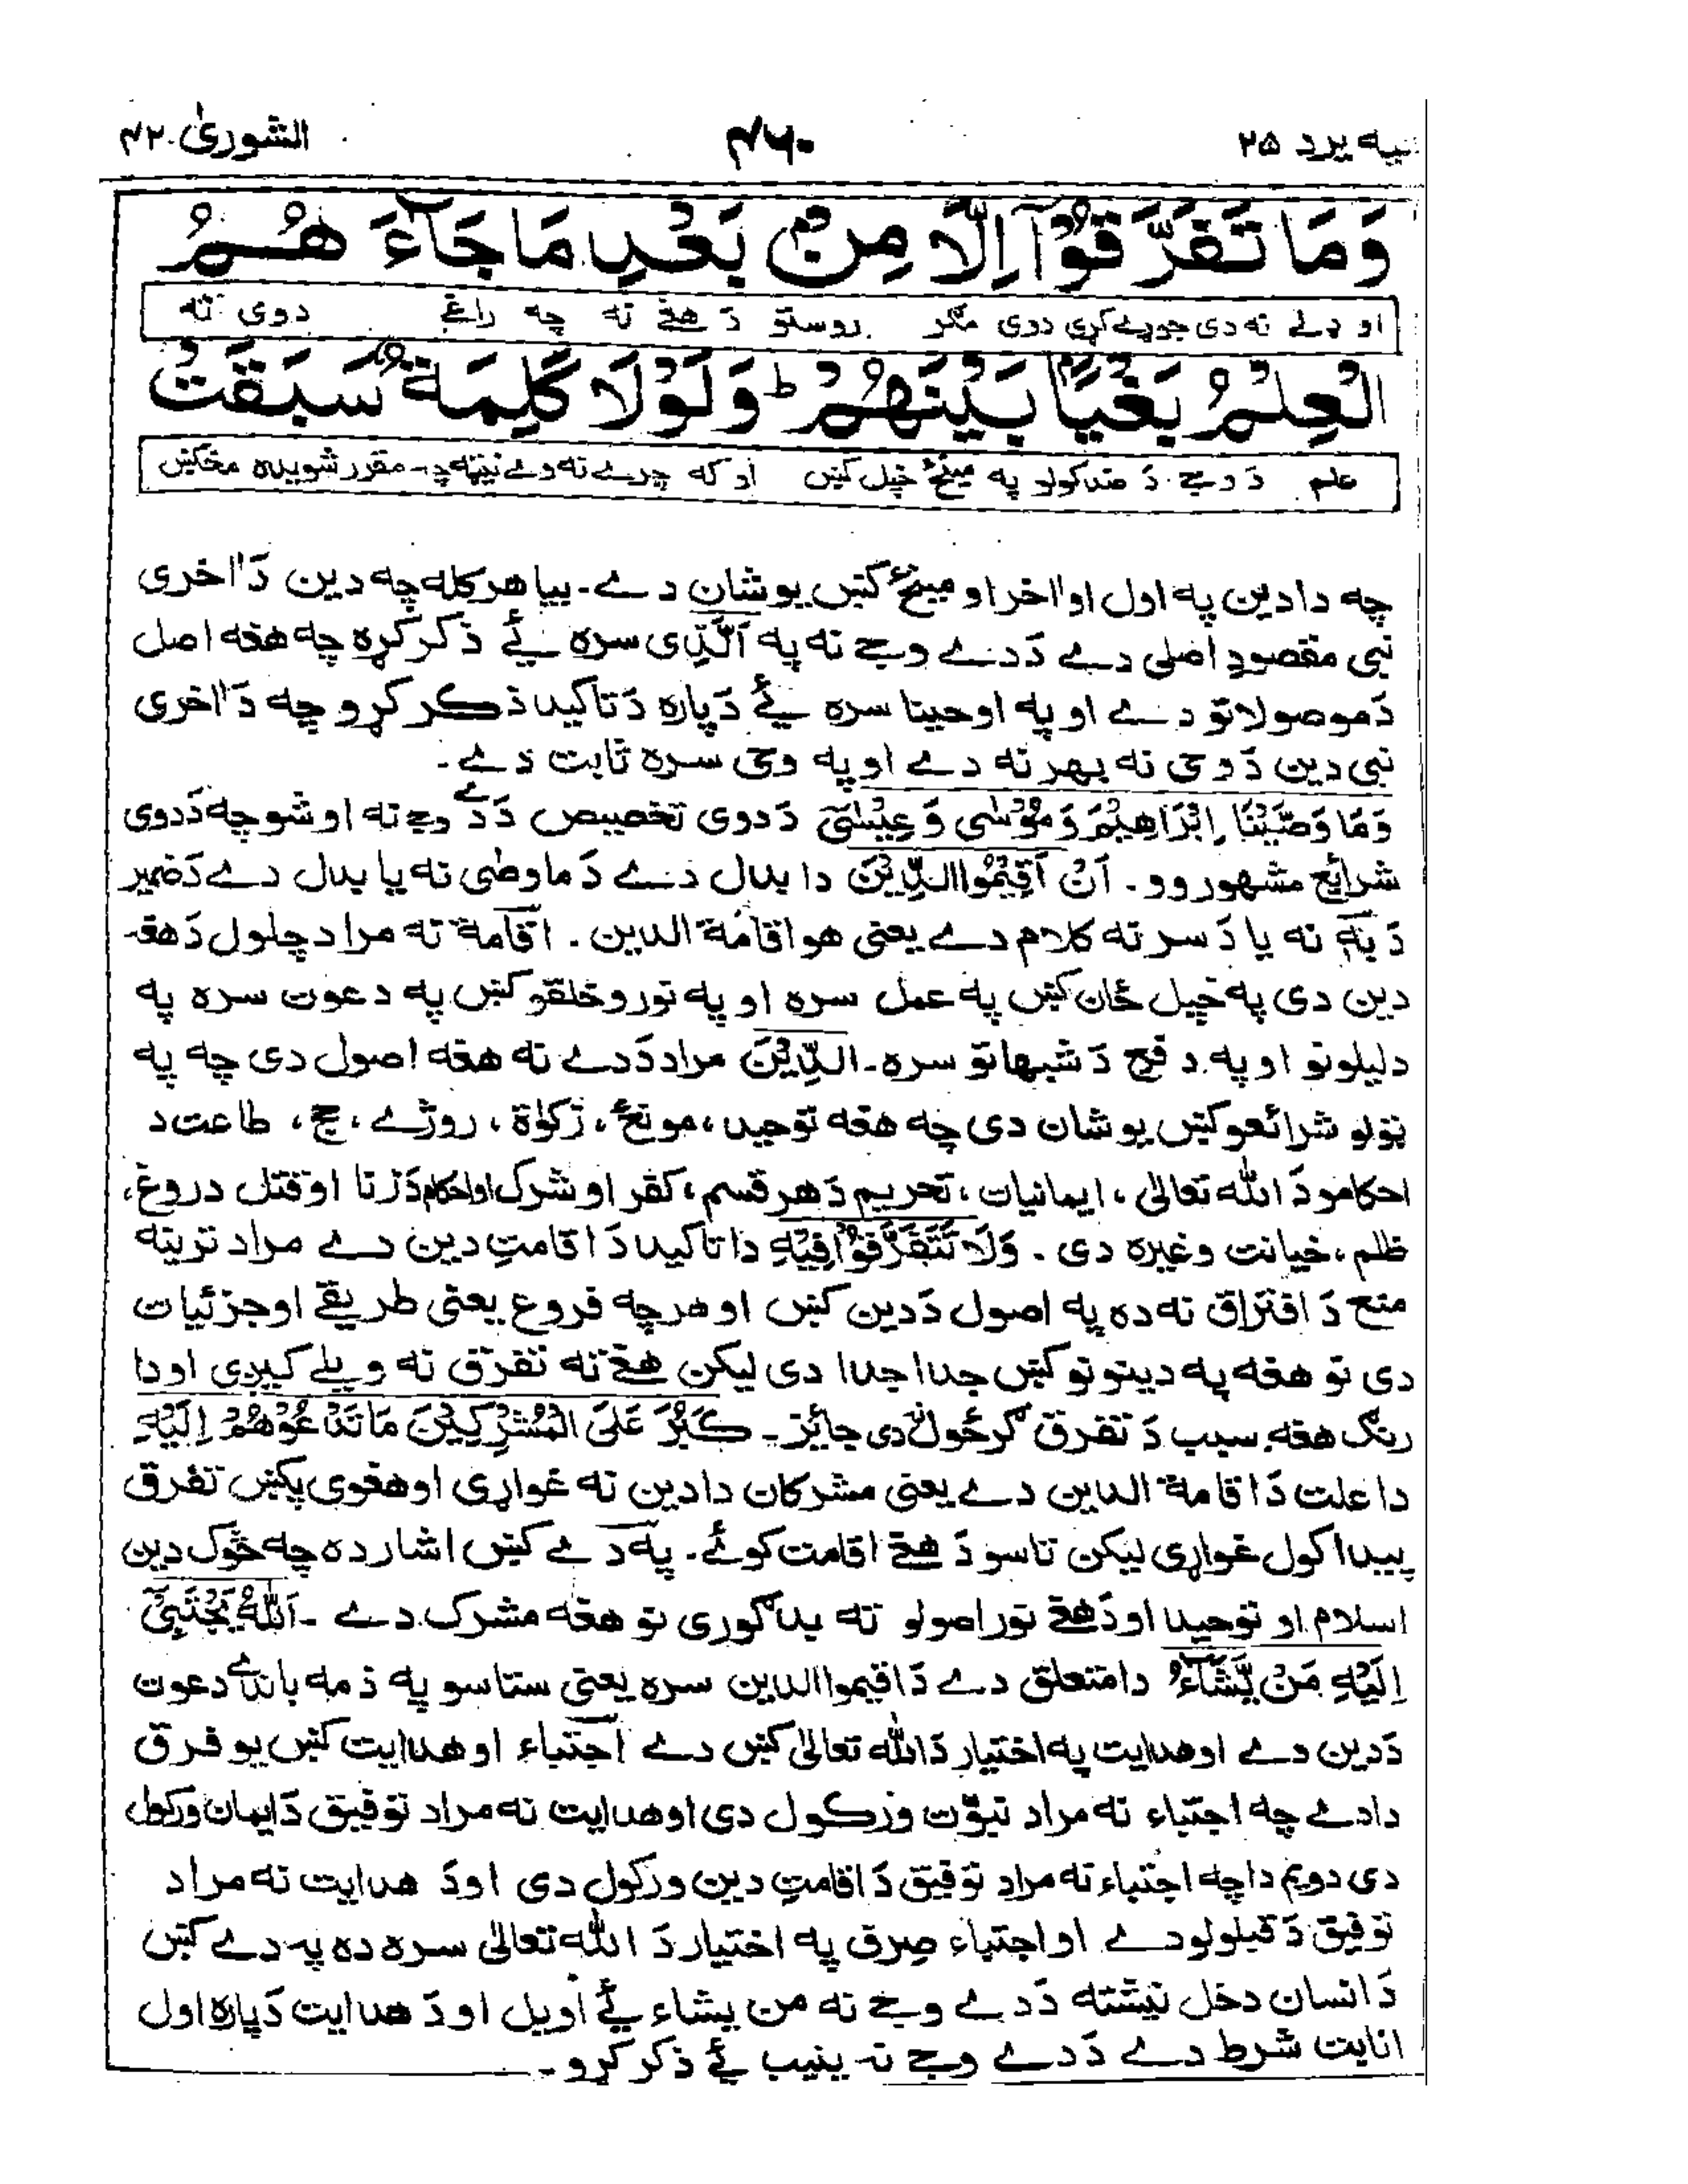 الیه یرد ۲۵ ۴۶۰ الشوریٰ ۴۲
وَمَا تَفَرَّقُوْٓا اِلَّا مِنْۢ بَعْدِ مَا جَآءَ هُمُ
او ډلے نه دی جوړے کړی دوی مگر روستو دَ هغے نه چه راغے دوی ته
الْعِلْمُ بَغْيًاۢ بَيْنَهُمْ ؕ وَلَوْلَا كَلِمَةٌ سَبَقَتْ
علم دَ وجے دَ ضد کولو په مینځ خپل کښ او که چرے نه وے نیټه چه مقرر شویده مخکښ
چه دا دین په اول او اٰخر او مینځ کښ یو شان دے۔ بیا هر کله چه دین دَ اٰخری
نبی مقصودِ اصلی دے دَ دے وجے نه په اَلَّذِی سره ئے ذکر کړه چه هغه اصل
دَ موصولاتو دے او په اوحینا سره ئے دَ پاره دَ تاکید ذکر کړو چه دَ اٰخری
نبی دین دَ وحی نه بهر نه دے او په وحی سره ثابت دے۔
وَمَا وَصَّيْنَا اِبْرَاهِيْمَ وَمُوْسٰى وَعِيْسٰى دَ دوی تخصیص دَ دے وجے نه اوشو چه دَ دوی
شرائع مشهور وو۔ اَنْ اَقِيْمُوا الدِّيْنَ دا بدل دے دَ ما وصّٰی نه یا بدل دے دَ ضمیر
دَ بِهٖ نه یا دَ سر نه کلام دے یعنی هو اقامة الدین۔ اقامة نه مراد چلول دَ هغه
دین دی په خپل ځان کښ په عمل سره او په نورو خلقو کښ په دعوت سره په
دلیلونو او په دفع دَ شبهاتو سره۔ الدِّيْنَ مراد دَ دے نه هغه اصول دی چه په
ټولو شرائعو کښ یو شان دی چه هغه توحید، مونځ، زکوٰة، روژے، حج، طاعت دَ
احکامو دَ الله تعالیٰ، ایمانیات، تحریم دَ هر قسم، کفر او شرک او احکام دَ زنا او قتل دروغ،
ظلم، خیانت وغیره دی۔ وَلَا تَتَفَرَّقُوْا فِيْهِ دا تاکید دَ اقامتِ دین دے مراد ترینه
منع دَ افتراق نه ده په اصول دَ دین کښ او هر چه فروع یعنی طریقے او جزئیات
دی نو هغه په دینونو کښ جدا جدا دی لیکن هغے ته تفرّق نه ویلے کیږی او دا
رنگ هغه سبب دَ تفرق گرځول نه دی جائز۔ كَبُرَ عَلَى الْمُشْرِكِيْنَ مَا تَدْعُوْهُمْ اِلَيْهِ
دا علت دَ اقامة الدین دے یعنی مشرکان دا دین نه غواړی او هغوی پکښ تفرق
پیدا کول غواړی لیکن تاسو دَ هغے اقامت کوئے۔ په دے کښ اشاره ده چه څوک دین
اسلام او توحید او دَ هغے نور اصولو ته بد گوری نو هغه مشرک دے۔ اَللّٰهُ يَجْتَبِيْٓ
اِلَيْهِ مَنْ يَّشَآءُ دا متعلق دے دَ اقیموا الدین سره یعنی ستاسو په ذمه باندے دعوت
دَ دین دے او هدایت په اختیار دَ الله تعالیٰ کښ دے اجتباء او هدایت کښ یو فرق
دا دے چه اجتباء نه مراد نبوّت ورکول دی او هدایت نه مراد توفیق دَ ایمان ورکول
دی دویم دا چه اجتباء نه مراد توفیق دَ اقامتِ دین ورکول دی او دَ هدایت نه مراد
توفیق دَ قبلولو دے او اجتباء صرف په اختیار دَ الله تعالیٰ سره ده په دے کښ
دَ انسان دخل نیشته دَ دے وجے نه من یشاء ئے اویل او دَ هدایت دَ پاره اول
انابت شرط دے دَ دے وجے نه ینیب ئے ذکر کړو۔